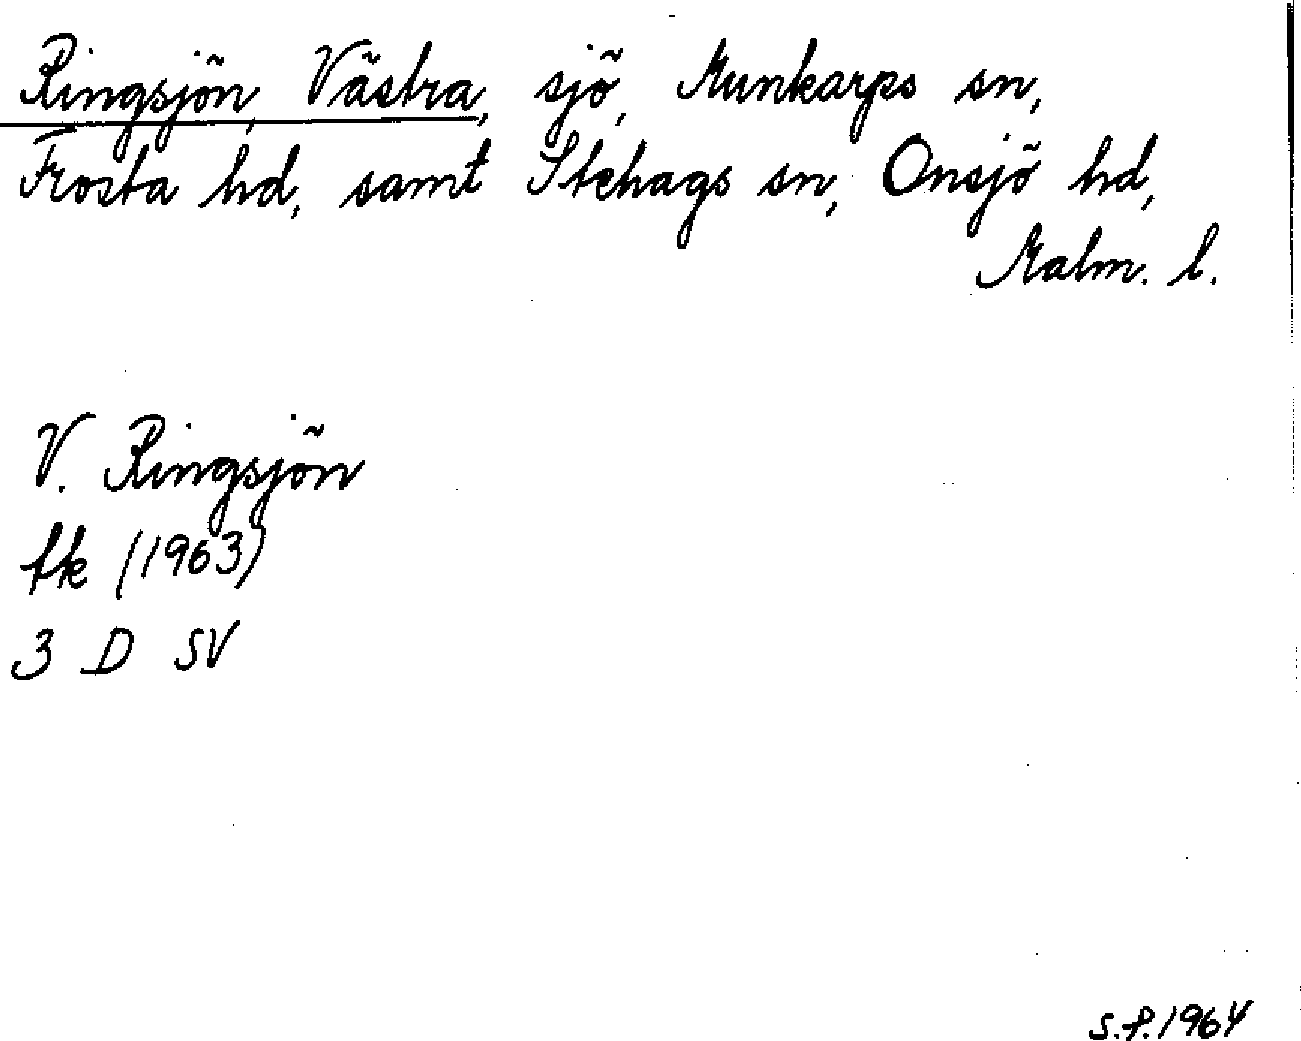 Ringsjön, Västra, sjö, Munkarps sn,
Frosta hd, samt Stehags sn, Onsjö hd,
Malm. l.
V. Ringsjön
tk (1963)
3 D SV
S.P. 1964